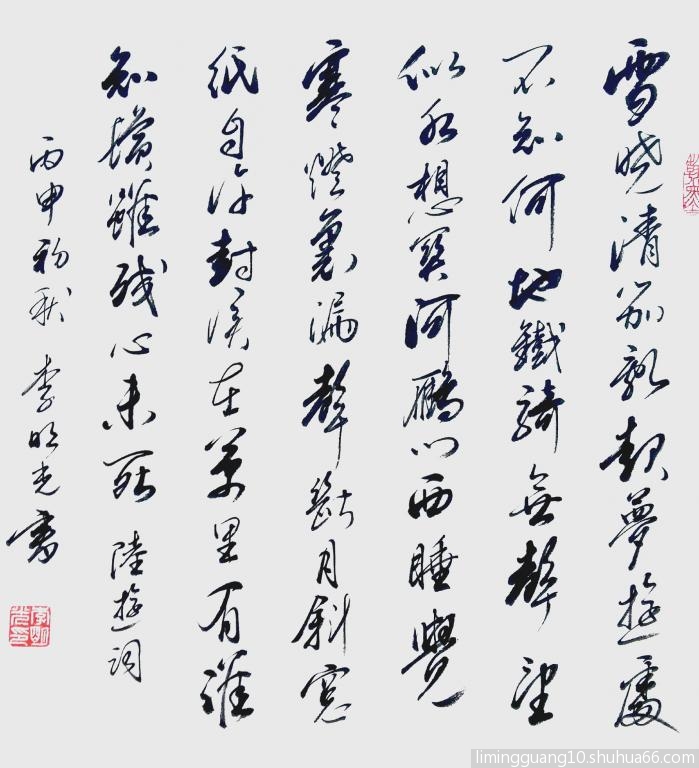 雪晓清笳亂起夢遊處
不知何地鐵騎無聲望
似水想關河鴈门西睡覺
寒燈裏漏聲斷月斜窓
紙自许封侯在萬里有誰
知鬢雖残心未死 陸遊詞
丙申初秋 李明光書
limingguang10.shuhua66.com